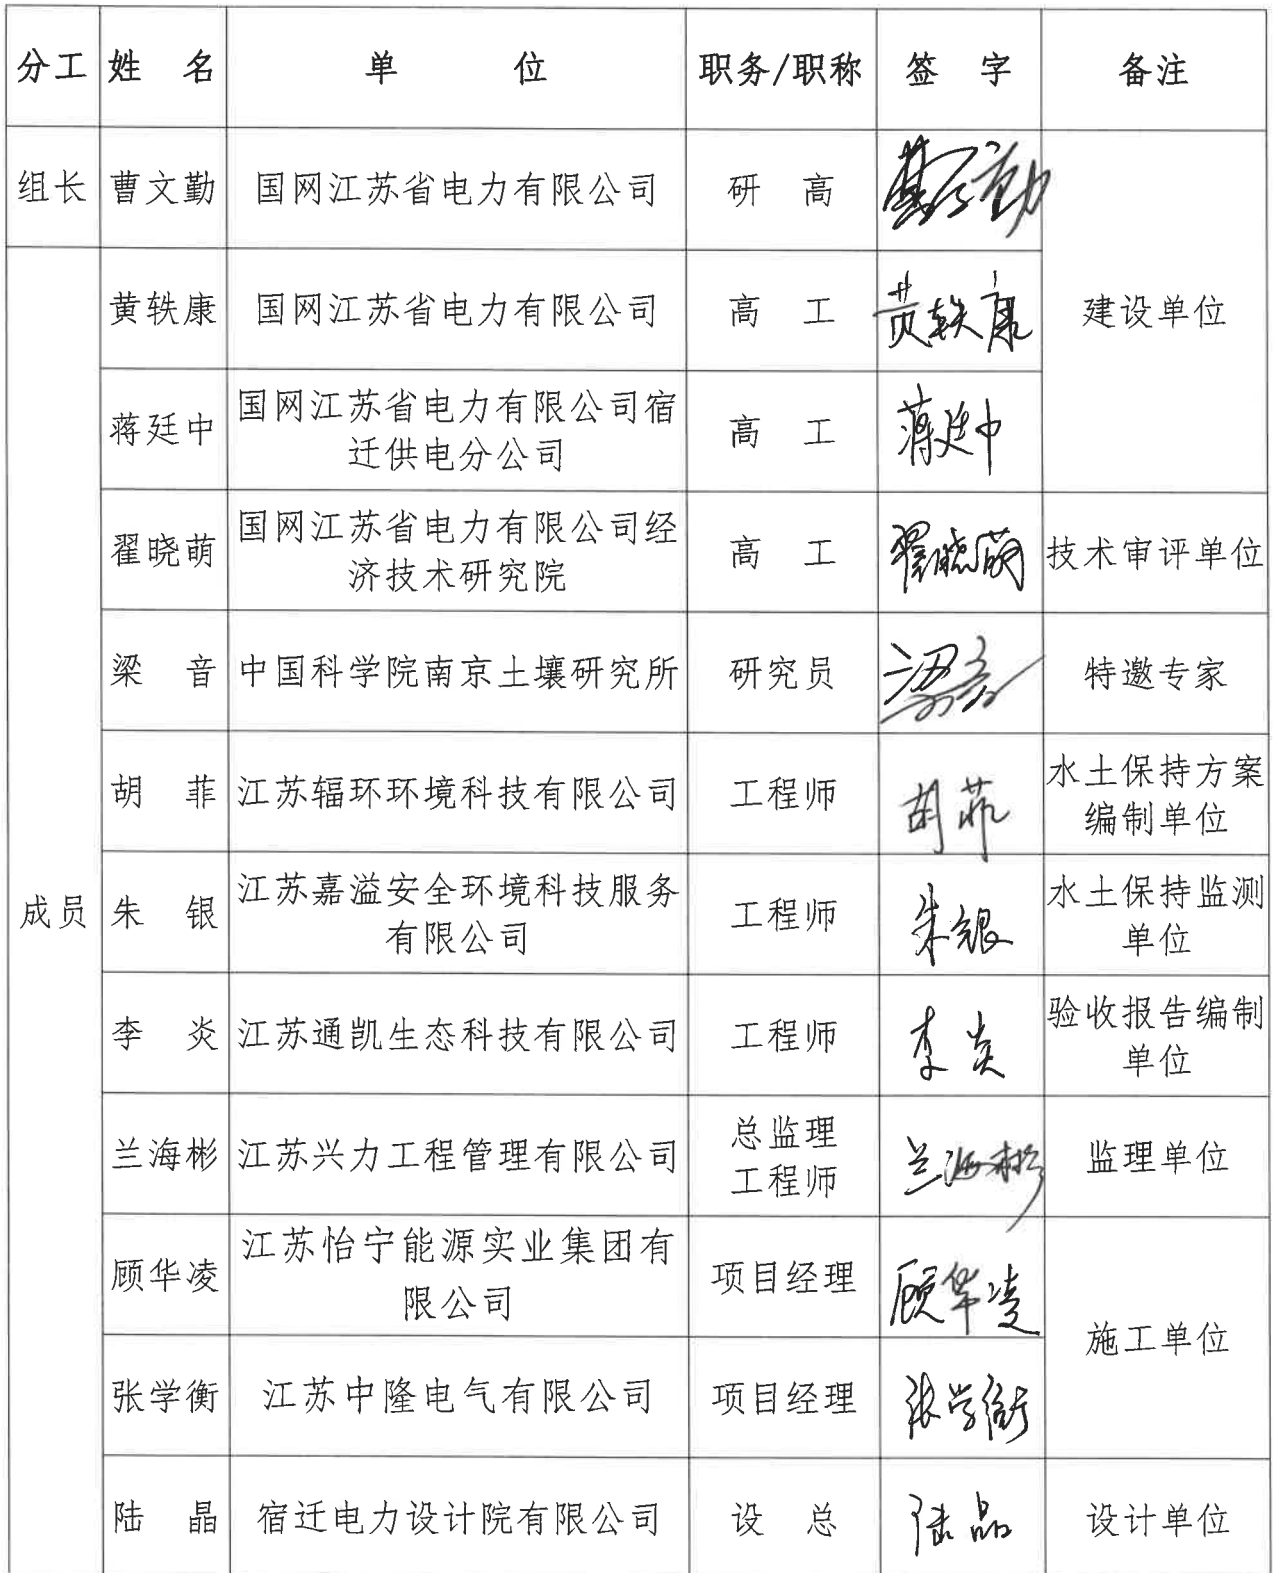 分工 姓 名 单 位 职务/职称 签 字 备注
组长 曹文勤 国网江苏省电力有限公司 研 高 曹文勤
黄轶康 国网江苏省电力有限公司 高 工 黄轶康 建设单位
蒋廷中 国网江苏省电力有限公司宿
迁供电分公司 高 工 蒋廷中
翟晓萌 国网江苏省电力有限公司经
济技术研究院 高 工 翟晓萌 技术审评单位
梁 音 中国科学院南京土壤研究所 研究员 梁音 特邀专家
胡 菲 江苏辐环环境科技有限公司 工程师 胡菲 水土保持方案
编制单位
成员 朱 银 江苏嘉溢安全环境科技服务
有限公司 工程师 朱银 水土保持监测
单位
李 炎 江苏通凯生态科技有限公司 工程师 李炎 验收报告编制
单位
兰海彬 江苏兴力工程管理有限公司 总监理
工程师 兰海彬 监理单位
顾华凌 江苏怡宁能源实业集团有
限公司 项目经理 顾华凌 施工单位
张学衡 江苏中隆电气有限公司 项目经理 张学衡
陆 晶 宿迁电力设计院有限公司 设 总 陆晶 设计单位